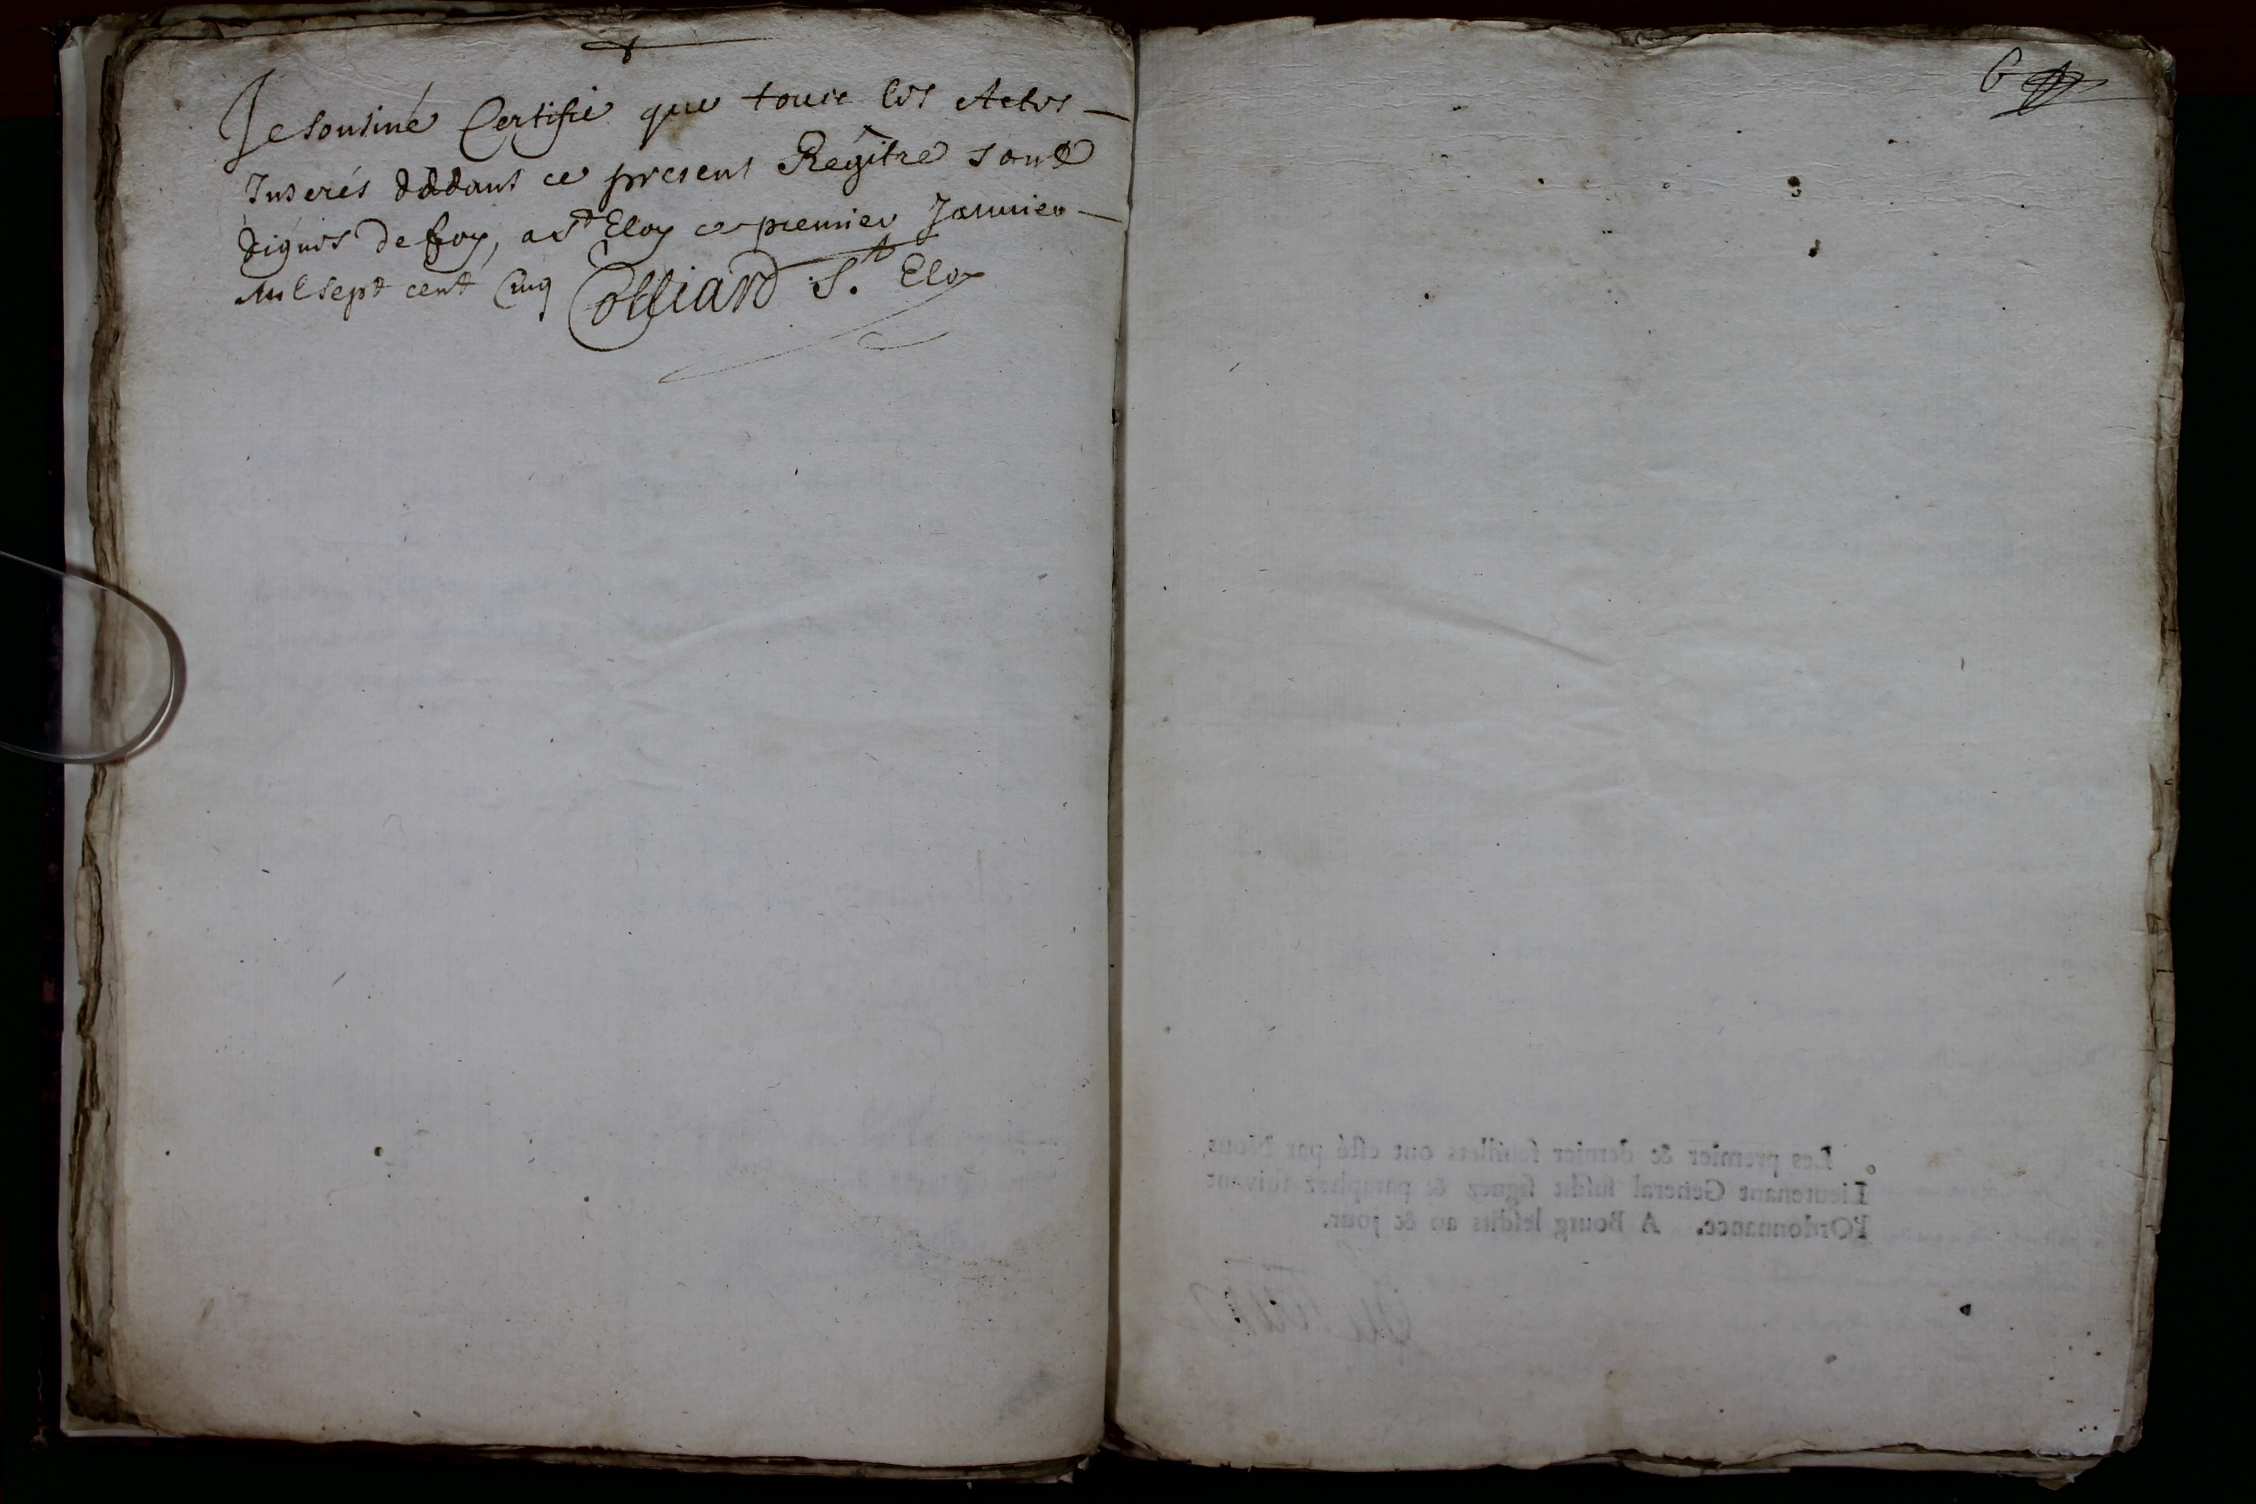 Je sousiné Certifie que tous les Actes
Inserés dedans ce present Regître sont
dignes de foy, a St Eloy ce premier Janvier
Mil sept cent Cinq Colliard St. Eloy
6
Les premier & dernier feuillets ont esté par Nous,
Lieutenant General susdit signez & paraphez suivant
l'Ordonnance. A Bourg lesdits an & jour.